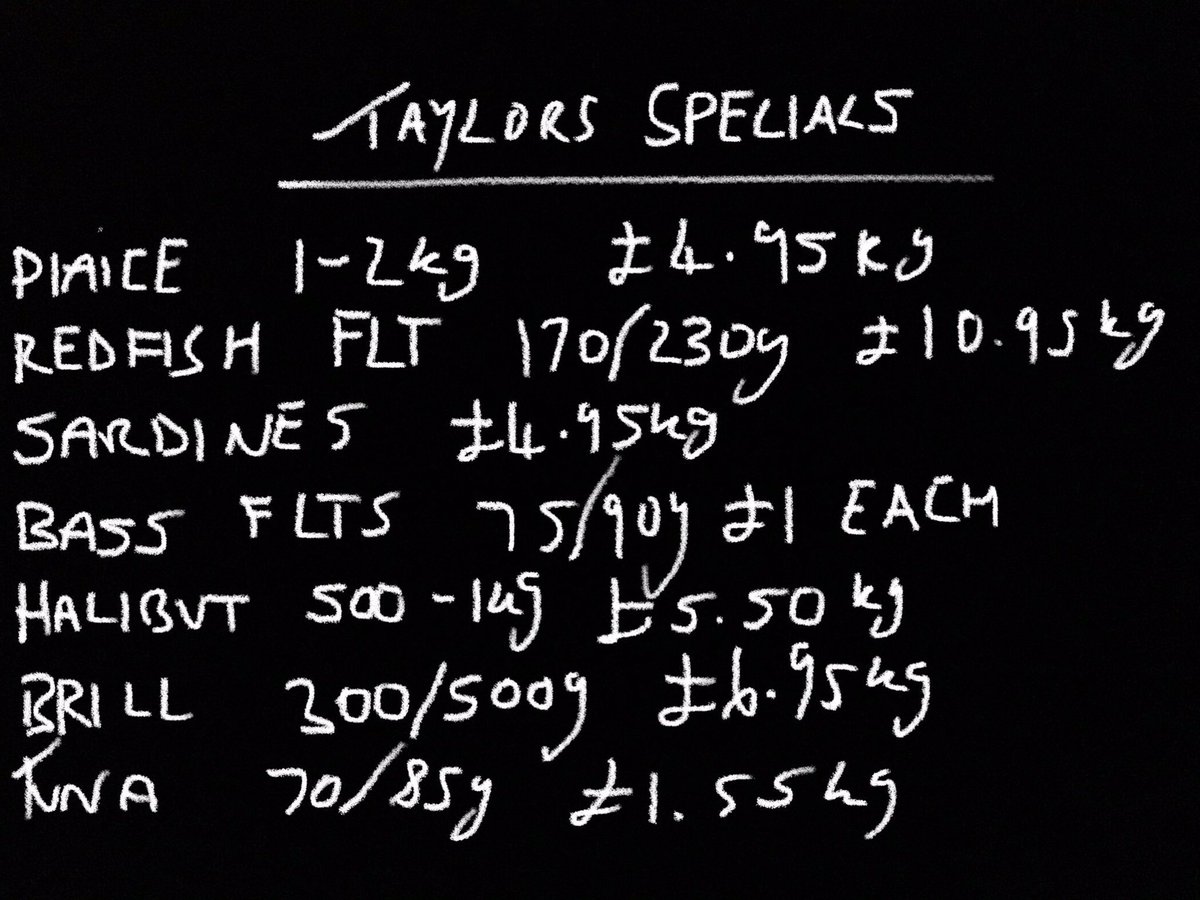 TAYLORS SPECIALS
PLAICE 1-2kg £4.95kg
REDFISH FLT 170/230g £10.95kg
SARDINES £4.95kg
BASS FLTS 75/90g £1 EACH
HALIBUT 500-1kg £5.50 kg
BRILL 300/500g £6.95kg
TUNA 70/85g £1.55kg